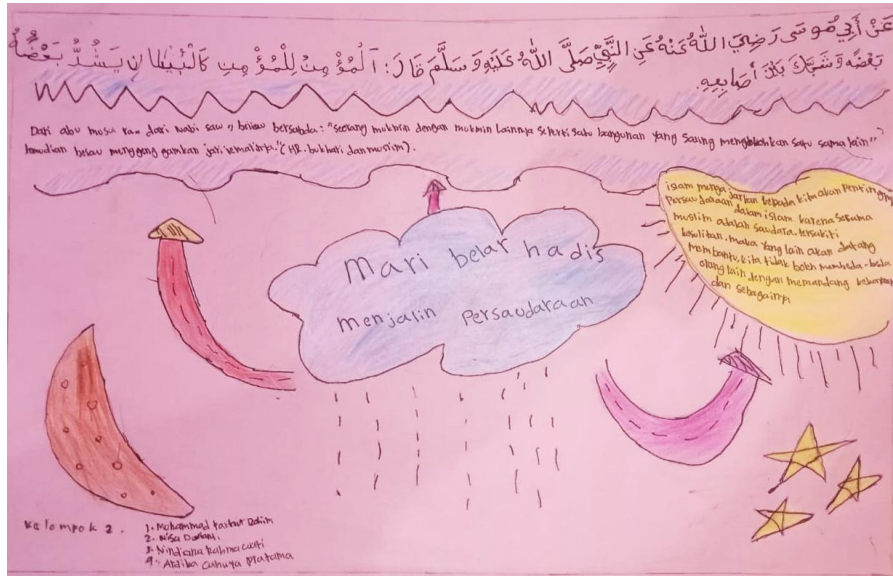 عَنْ أَبِي مُوسَى رَضِيَ اللهُ عَنْهُ عَنِ النَّبِيِّ صَلَّى اللهُ عَلَيْهِ وَسَلَّمَ قَالَ: اَلْمُؤْمِنُ لِلْمُؤْمِنِ كَالْبُنْيَانِ يَشُدُّ بَعْضُهُ
بَعْضًا وَشَبَّكَ بَيْنَ أَصَابِعِهِ.
Dari abu musa ra. dari Nabi saw, beliau bersabda: "seorang mukmin dengan mukmin lainnya seperti satu bangunan yang saling mengokohkan satu sama lain"
kemudian beliau menggenggamkan jari jemarinya." (HR. bukhari dan muslim).
islam mengajarkan kepada kita akan pentingnya
Persaudaraan dalam islam karena sesama
muslim adalah saudara
kesulitan. maka yang lain akan datang
membantu, kita tidak boleh membeda-beda
orang lain dengan memandang
dan sebagainya
Mari belar hadis
menjalin Persaudaraan
Kelompok 2.
1. Mohammad
2. Nisa
3. Nindiana Rahmawati
4. Cahaya Pratama